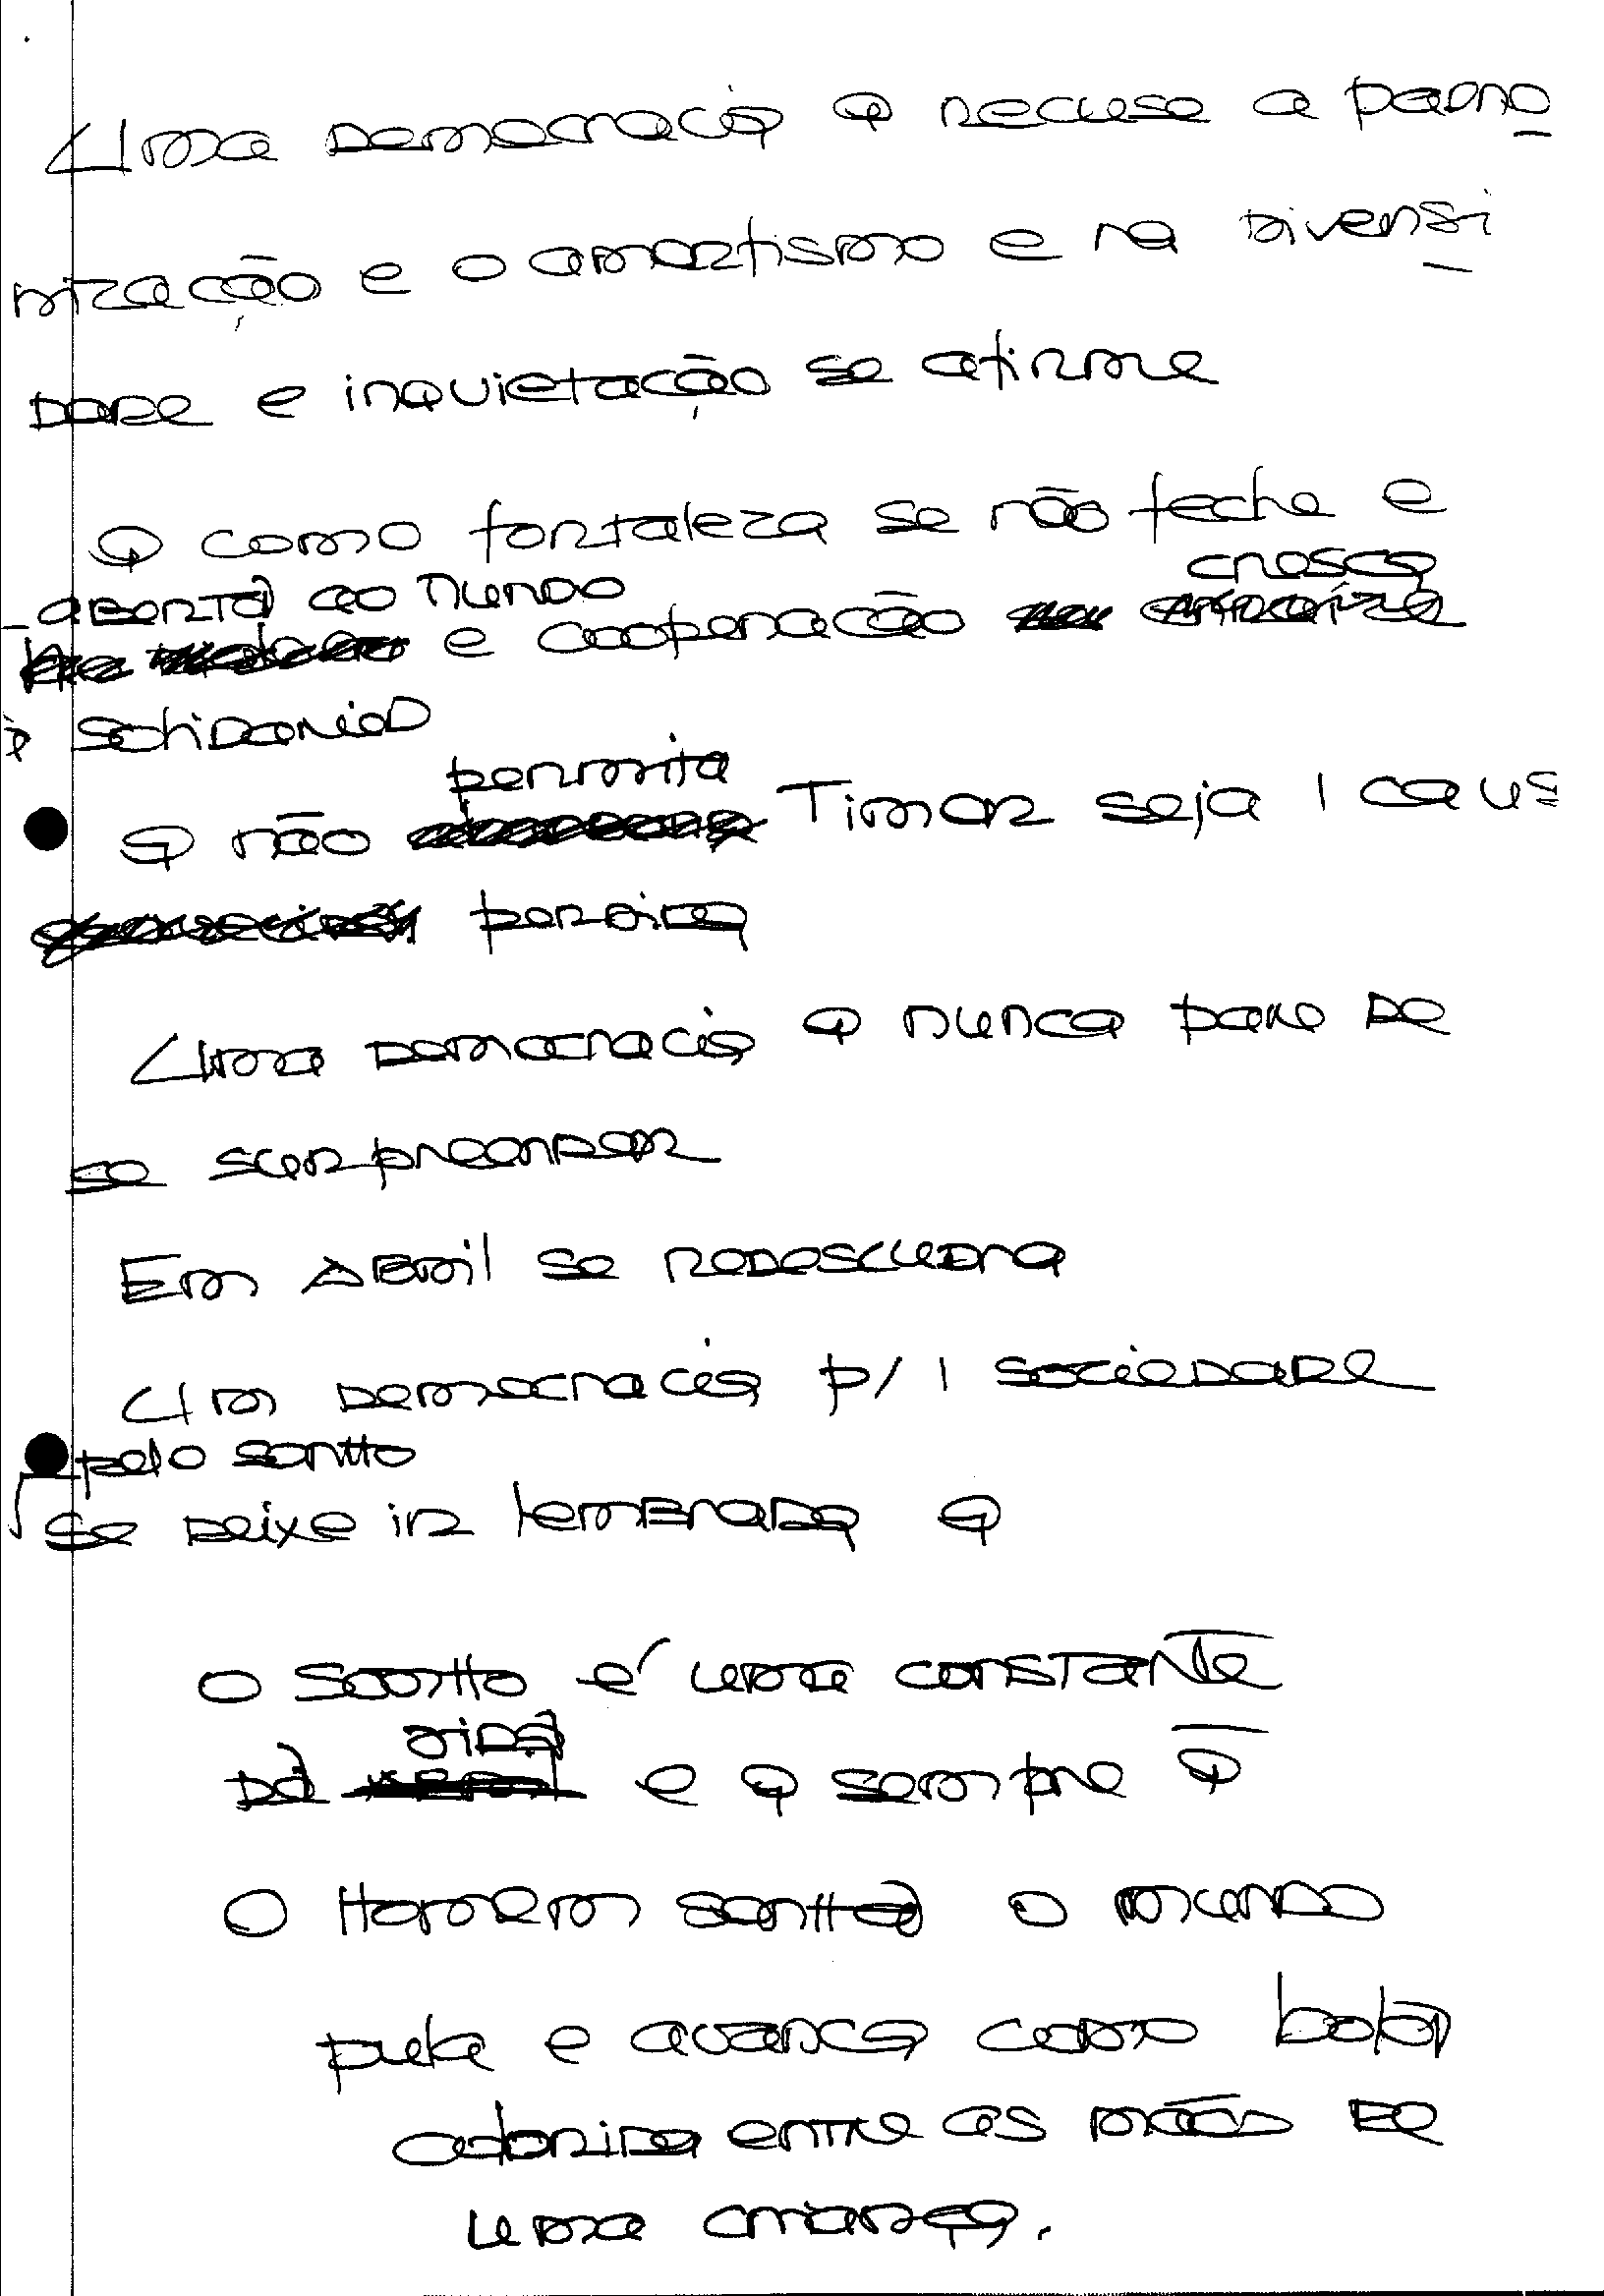 Uma democracia q recuse a padro
nização e o amorfismo e na diversi
dade e inquietação se afirme
Q como fortaleza se não feche e
aberta ao mundo cresça
e cooperação
à solidaried
permita
Q não Timor seja 1 causa
perdida
Uma democracia q nunca pare de
se surpreender
Em Abril se redescubra
Um democracia p/ 1 sociedade
pelo sonho
se deixe ir lembrada q
O sonho é uma constante
vida
da e q sempre q
O Homem sonha o mundo
pula e avança como bola
colorida entre as mãos de
uma criança.